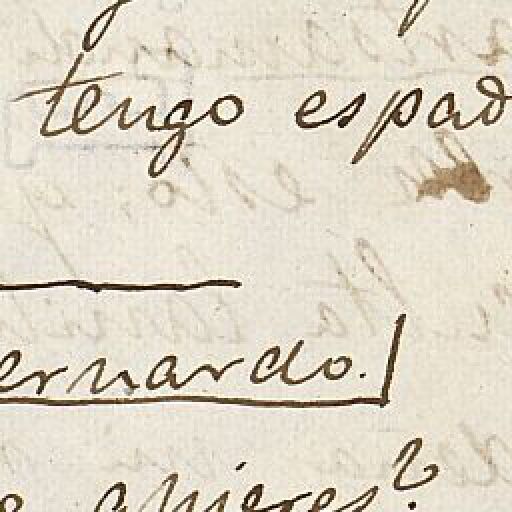 tengo espad
ernardo.
quieres?